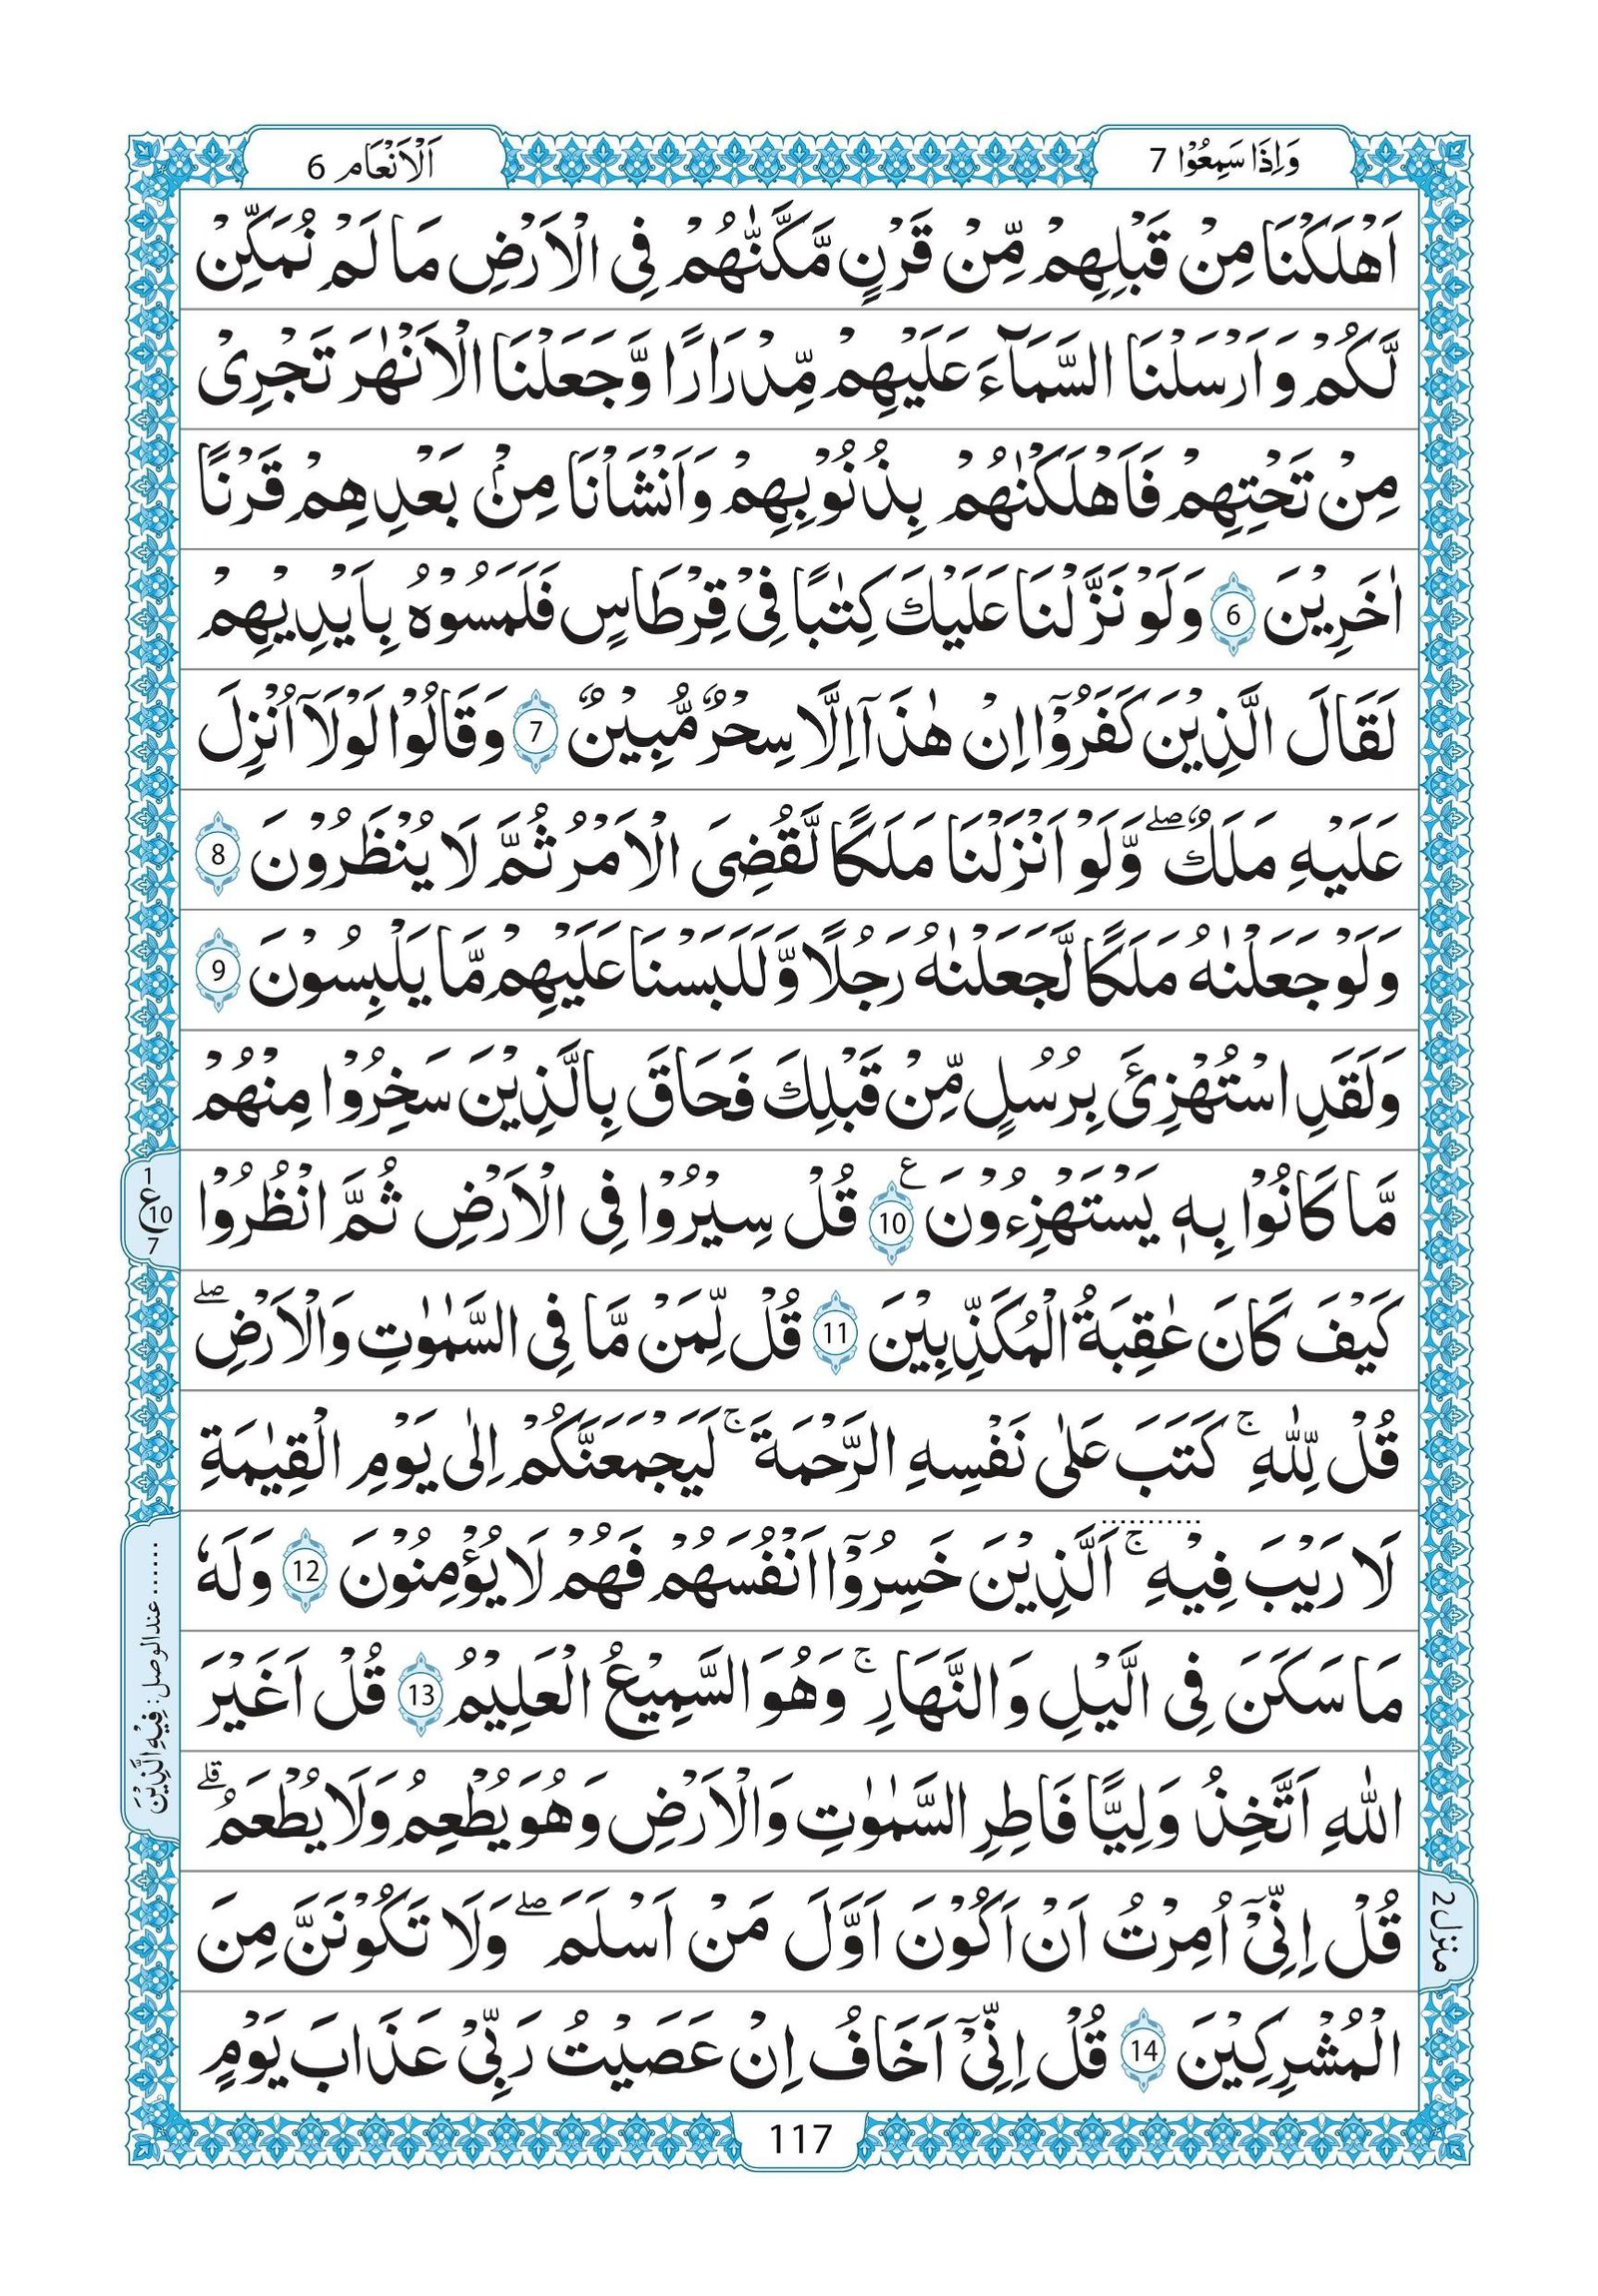 وَاِذَا سَمِعُوْا 7
اَلْاَنْعَام 6
اَهْلَكْنَا مِنْ قَبْلِهِمْ مِّنْ قَرْنٍ مَّكَّنّٰهُمْ فِى الْاَرْضِ مَا لَمْ نُمَكِّنْ
لَّكُمْ وَاَرْسَلْنَا السَّمَآءَ عَلَيْهِمْ مِّدْرَارًا وَّجَعَلْنَا الْاَنْهٰرَ تَجْرِىْ
مِنْ تَحْتِهِمْ فَاَهْلَكْنٰهُمْ بِذُنُوْبِهِمْ وَاَنْشَاْنَا مِنْۢ بَعْدِهِمْ قَرْنًا
اٰخَرِيْنَ 6 وَلَوْ نَزَّلْنَا عَلَيْكَ كِتٰبًا فِىْ قِرْطَاسٍ فَلَمَسُوْهُ بِاَيْدِيْهِمْ
لَقَالَ الَّذِيْنَ كَفَرُوْۤا اِنْ هٰذَاۤ اِلَّا سِحْرٌ مُّبِيْنٌ 7 وَقَالُوْا لَوْلَاۤ اُنْزِلَ
عَلَيْهِ مَلَكٌ ۖ وَّلَوْ اَنْزَلْنَا مَلَكًا لَّقُضِىَ الْاَمْرُ ثُمَّ لَا يُنْظَرُوْنَ 8
وَلَوْ جَعَلْنٰهُ مَلَكًا لَّجَعَلْنٰهُ رَجُلًا وَّلَلَبَسْنَا عَلَيْهِمْ مَّا يَلْبِسُوْنَ 9
وَلَقَدِ اسْتُهْزِئَ بِرُسُلٍ مِّنْ قَبْلِكَ فَحَاقَ بِالَّذِيْنَ سَخِرُوْا مِنْهُمْ
مَّا كَانُوْا بِهٖ يَسْتَهْزِءُوْنَ ع 10 قُلْ سِيْرُوْا فِى الْاَرْضِ ثُمَّ انْظُرُوْا
1 ع 10 7
كَيْفَ كَانَ عٰقِبَةُ الْمُكَذِّبِيْنَ 11 قُلْ لِّمَنْ مَّا فِى السَّمٰوٰتِ وَالْاَرْضِ ۖ
قُلْ لِّلّٰهِ ۚ كَتَبَ عَلٰى نَفْسِهِ الرَّحْمَةَ ۚ لَيَجْمَعَنَّكُمْ اِلٰى يَوْمِ الْقِيٰمَةِ
لَا رَيْبَ فِيْهِ ۚ اَلَّذِيْنَ خَسِرُوْۤا اَنْفُسَهُمْ فَهُمْ لَا يُؤْمِنُوْنَ 12 وَلَهٗ
......عندالوصل: فِيْهِ الَّذِيْنَ
مَا سَكَنَ فِى الَّيْلِ وَالنَّهَارِ ۚ وَهُوَ السَّمِيْعُ الْعَلِيْمُ 13 قُلْ اَغَيْرَ
اللّٰهِ اَتَّخِذُ وَلِيًّا فَاطِرِ السَّمٰوٰتِ وَالْاَرْضِ وَهُوَ يُطْعِمُ وَلَا يُطْعَمُ ۗ
قُلْ اِنِّىْۤ اُمِرْتُ اَنْ اَكُوْنَ اَوَّلَ مَنْ اَسْلَمَ ۖ وَلَا تَكُوْنَنَّ مِنَ
منزل 2
الْمُشْرِكِيْنَ 14 قُلْ اِنِّىْۤ اَخَافُ اِنْ عَصَيْتُ رَبِّىْ عَذَابَ يَوْمٍ
117